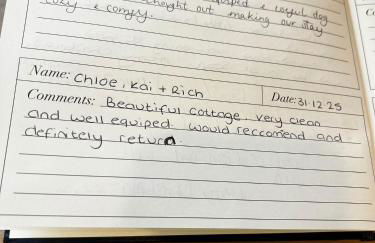 making our stay
cosy & comfy.
Name: Chloe, Kai + Rich
Date: 31.12.25
Comments: Beautiful cottage. very clean
and well equiped. would reccomend and
definitely return.